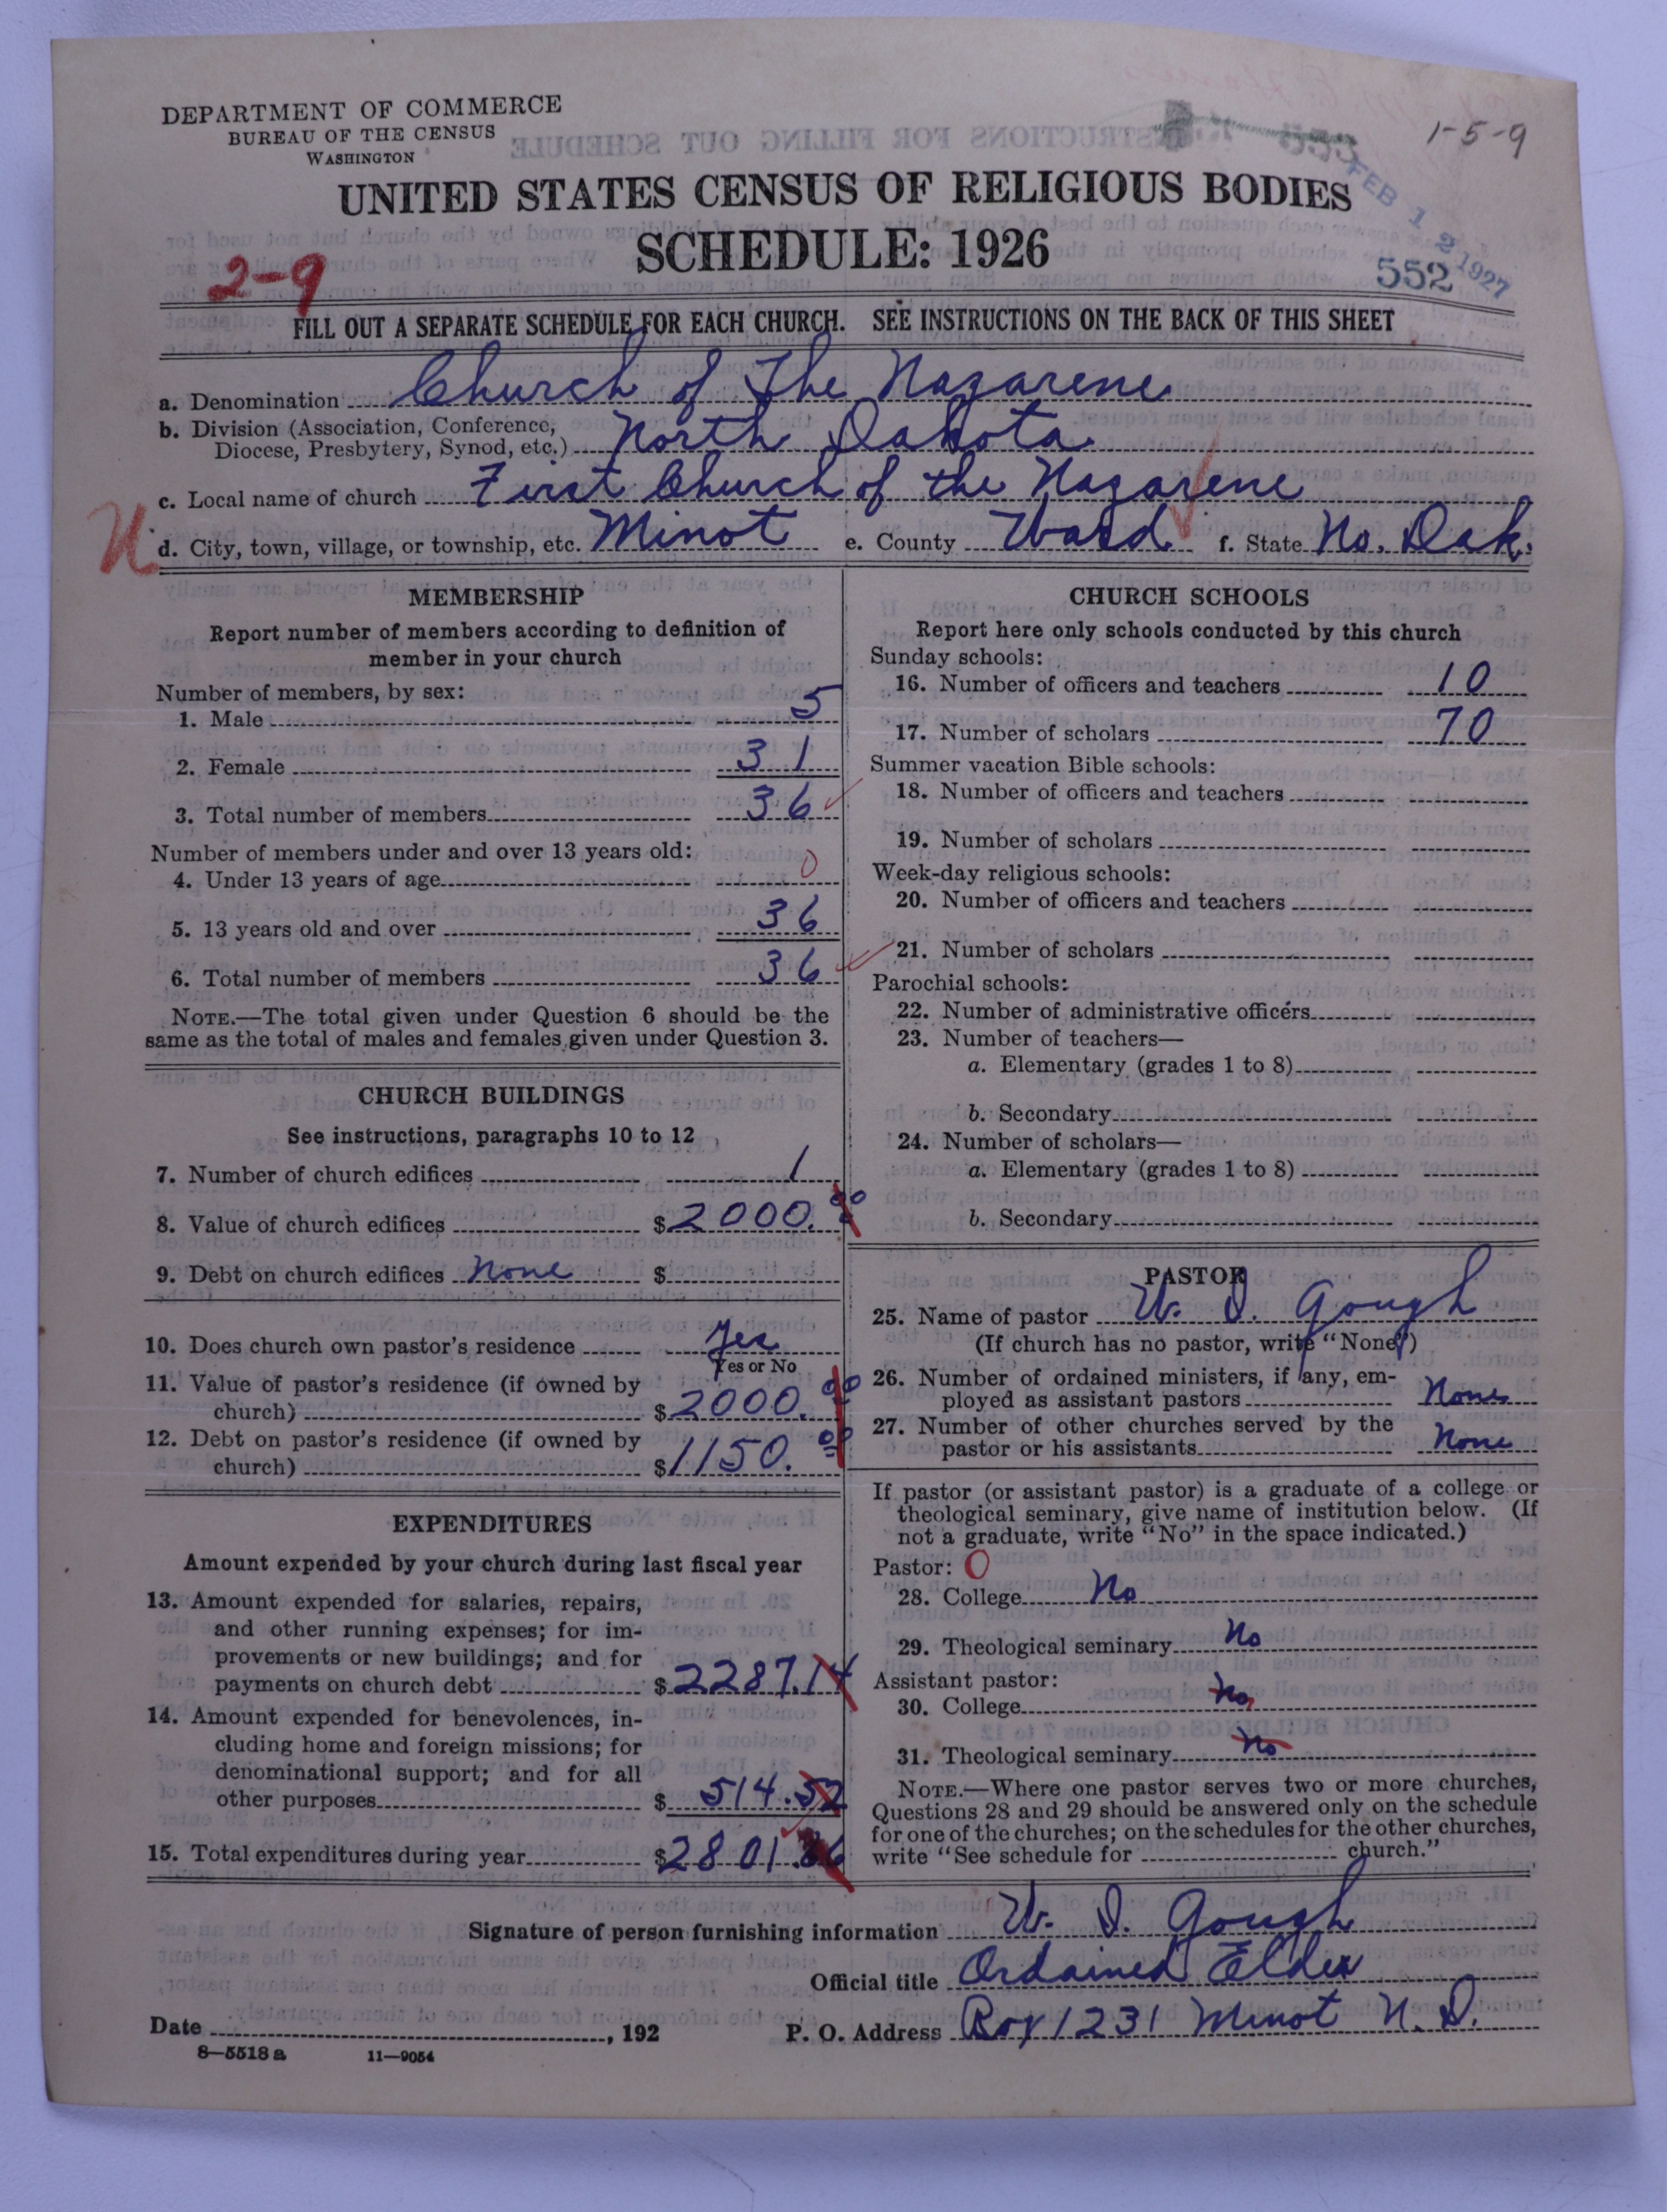 DEPARTMENT OF COMMERCE
BUREAU OF THE CENSUS
WASHINGTON
1-5-9
UNITED STATES CENSUS OF RELIGIOUS BODIES
SCHEDULE: 1926
FEB 12 1927
552
2-9
FILL OUT A SEPARATE SCHEDULE FOR EACH CHURCH. SEE INSTRUCTIONS ON THE BACK OF THIS SHEET
a. Denomination Church of The Nazarene
b. Division (Association, Conference,
Diocese, Presbytery, Synod, etc.) North Dakota
c. Local name of church First Church of the Nazarene
d. City, town, village, or township, etc. Minot e. County Ward f. State No. Dak.
MEMBERSHIP
Report number of members according to definition of
member in your church
Number of members, by sex:
1. Male 5
2. Female 31
3. Total number of members 36
Number of members under and over 13 years old:
4. Under 13 years of age 0
5. 13 years old and over 36
6. Total number of members 36
NOTE.—The total given under Question 6 should be the
same as the total of males and females given under Question 3.
CHURCH BUILDINGS
See instructions, paragraphs 10 to 12
7. Number of church edifices 1
8. Value of church edifices $2000.00
9. Debt on church edifices None $
10. Does church own pastor's residence Yes
Yes or No
11. Value of pastor's residence (if owned by
church) $2000.00
12. Debt on pastor's residence (if owned by
church) $1150.00
EXPENDITURES
Amount expended by your church during last fiscal year
13. Amount expended for salaries, repairs,
and other running expenses; for im-
provements or new buildings; and for
payments on church debt $2287.14
14. Amount expended for benevolences, in-
cluding home and foreign missions; for
denominational support; and for all
other purposes $514.52
15. Total expenditures during year $2801.
CHURCH SCHOOLS
Report here only schools conducted by this church
Sunday schools:
16. Number of officers and teachers 10
17. Number of scholars 70
Summer vacation Bible schools:
18. Number of officers and teachers
19. Number of scholars
Week-day religious schools:
20. Number of officers and teachers
21. Number of scholars
Parochial schools:
22. Number of administrative officers
23. Number of teachers—
a. Elementary (grades 1 to 8)
b. Secondary
24. Number of scholars—
a. Elementary (grades 1 to 8)
b. Secondary
PASTOR
25. Name of pastor W. D. Gough
(If church has no pastor, write "None")
26. Number of ordained ministers, if any, em-
ployed as assistant pastors None
27. Number of other churches served by the
pastor or his assistants None
If pastor (or assistant pastor) is a graduate of a college or
theological seminary, give name of institution below. (If
not a graduate, write "No" in the space indicated.)
Pastor: 0
28. College No
29. Theological seminary No
Assistant pastor:
30. College No
31. Theological seminary No
NOTE.—Where one pastor serves two or more churches,
Questions 28 and 29 should be answered only on the schedule
for one of the churches; on the schedules for the other churches,
write "See schedule for church."
Signature of person furnishing information W. D. Gough
Official title Ordained Elder
Date , 192 P. O. Address Box 1231 Minot N. D.
8—5518 a 11—9054